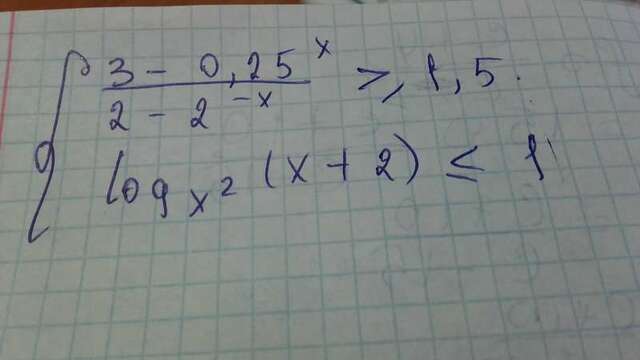 3 - 0,25^x / 2 - 2^-x ≥ 1,5.
log_x² (x + 2) ≤ 1